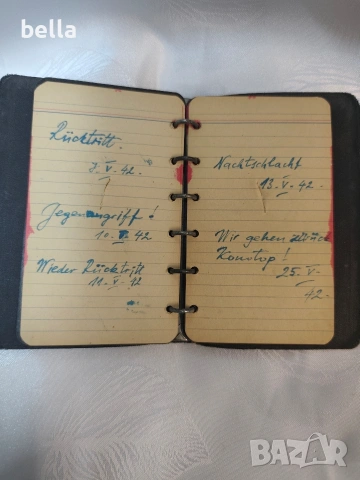 bella
Rücktritt.
7.V.42.
Gegenangriff!
10.V.42.
Wieder Rücktritt
11.V.42
Nachtschlacht
13.V.42.
Wir gehen zurück
Konstop!
25.V.
42.
BAZAR